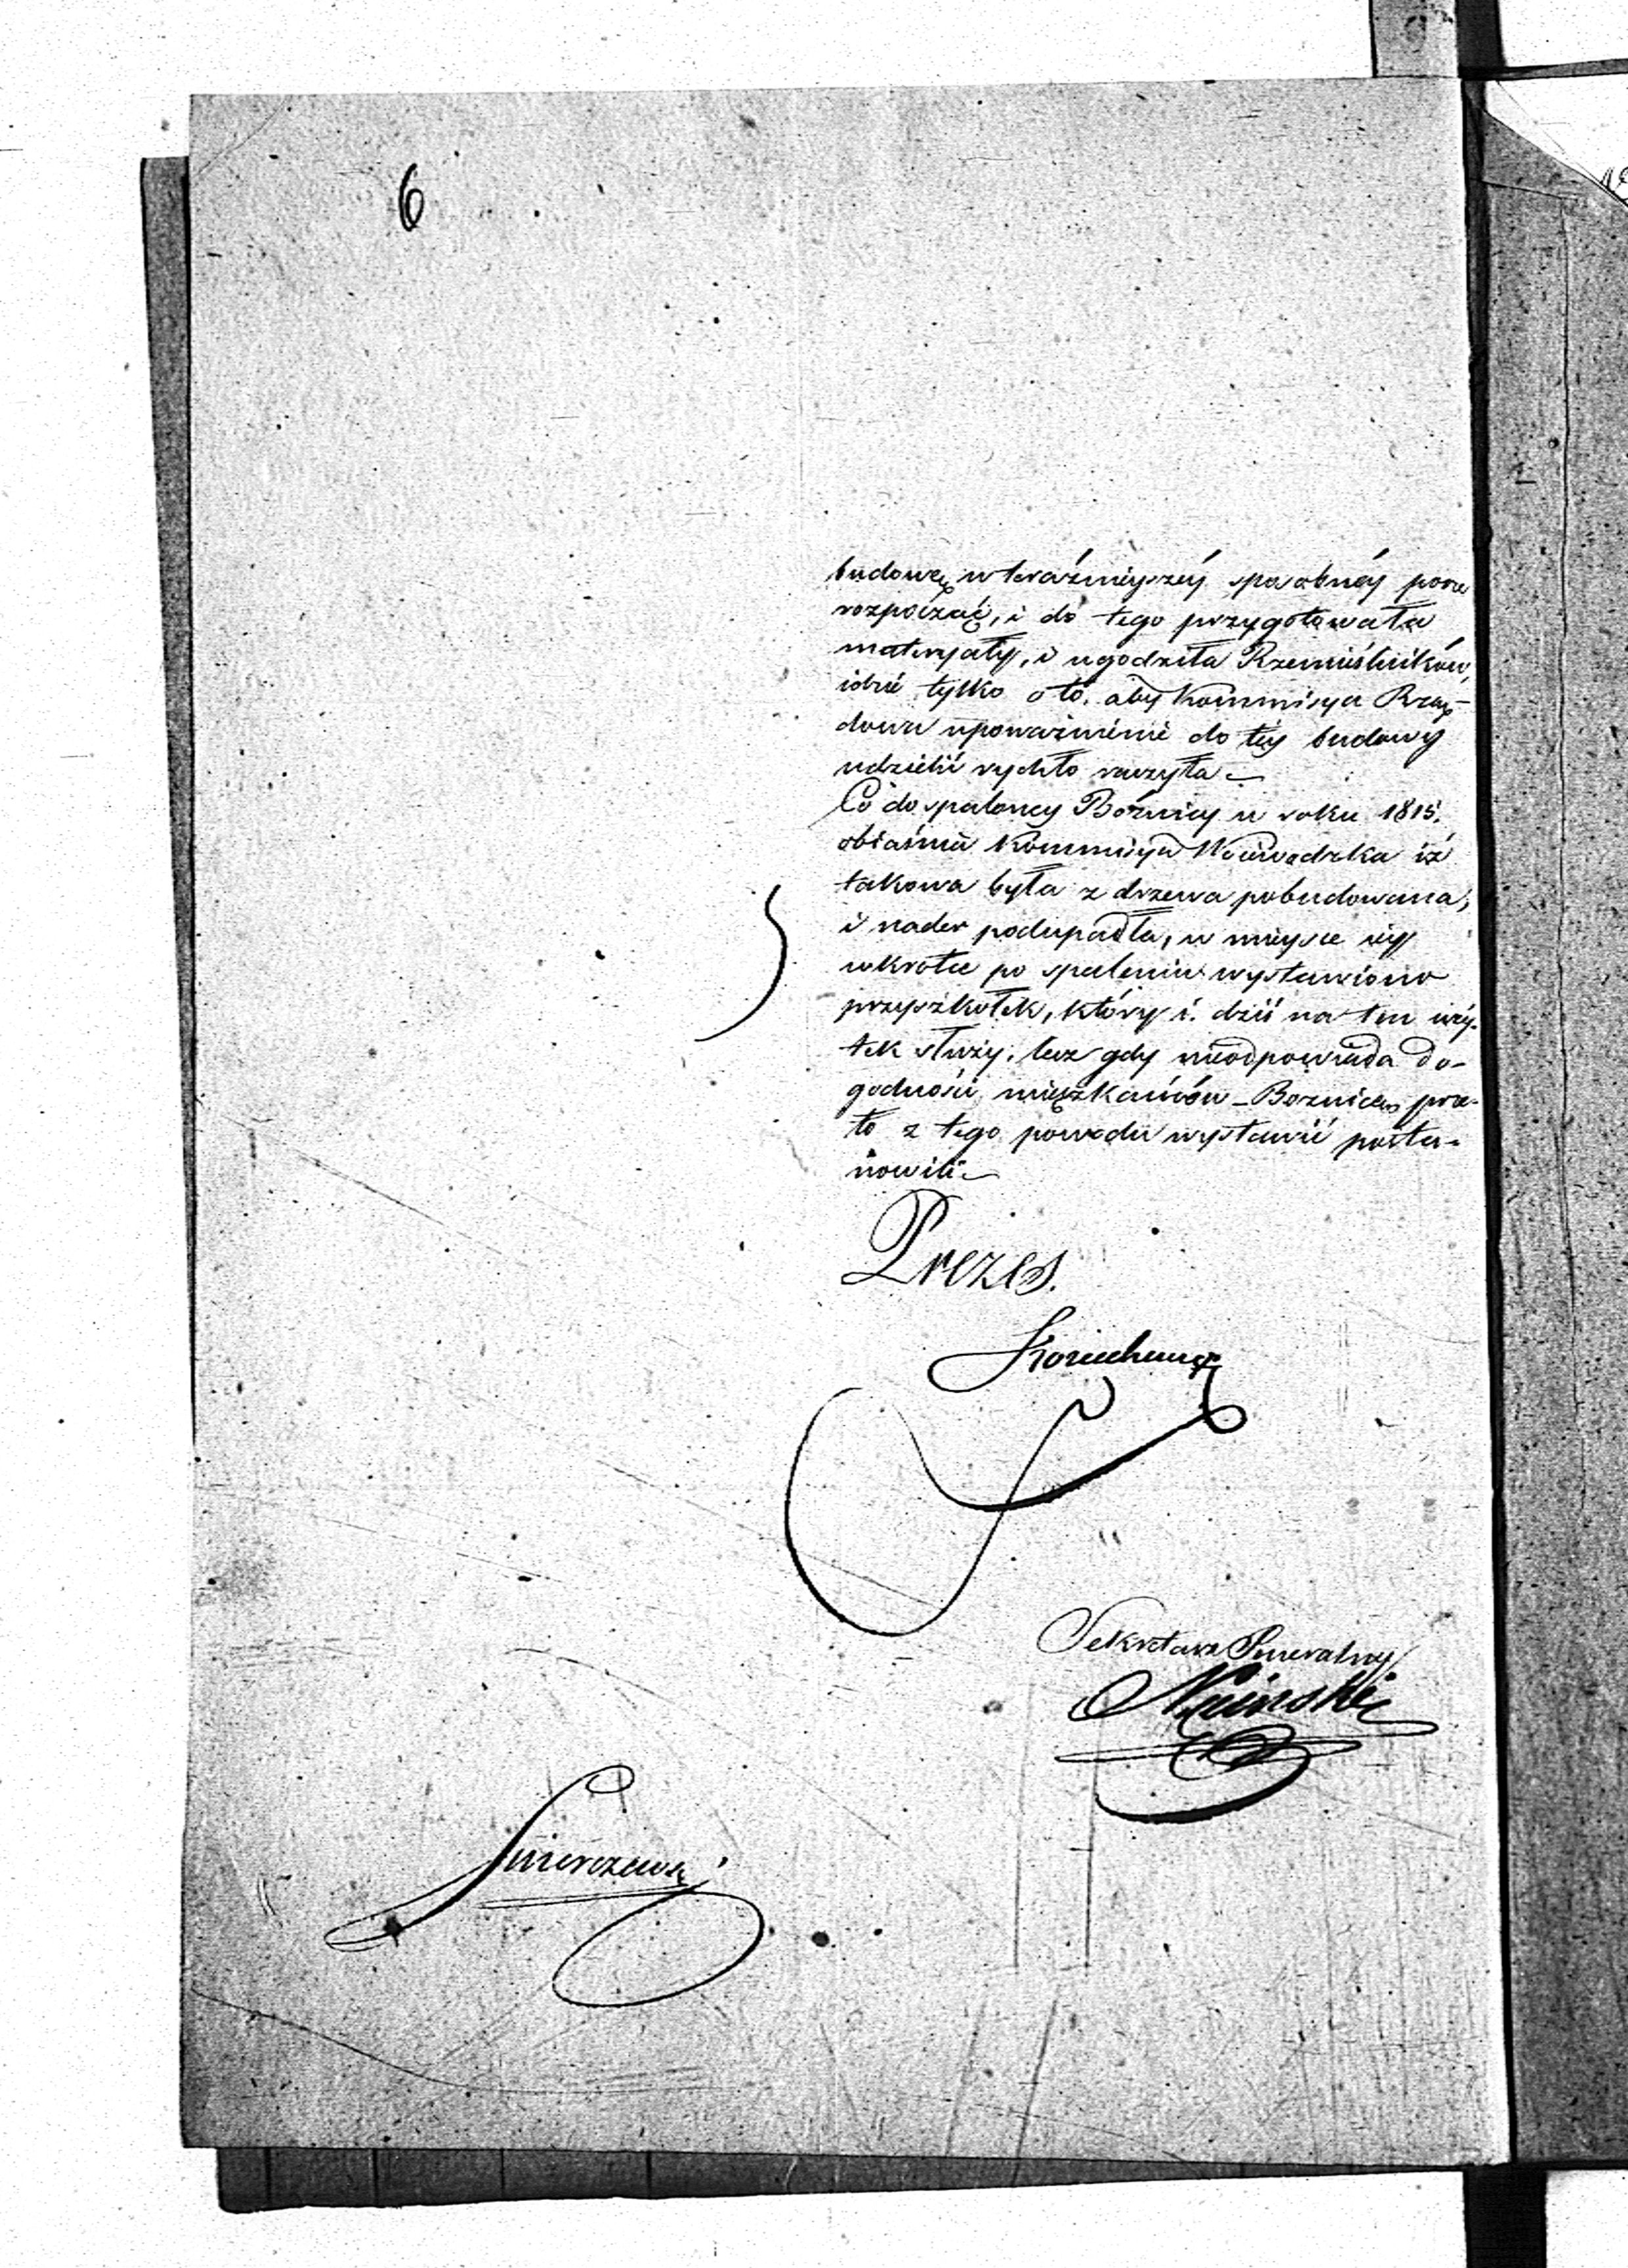 6
budowę w teraźnieyszéy sposobnéy porze
rozpocząć, i do tego przygotowała
materyały, i ugodziła Rzemieślników,
idzie tylko o to, aby Kommisya Rzą-
dowa upoważnienie do téy budowy
udzielić rychło raczyła –
Co do spaloney Bóżnicy w roku 1815.
obiaśnia Kommisya Woiewodzka iż
takowa była z drzewa pobudowana,
i nader podupadła, w mieysce iéy
wkrótce po spaleniu wystawiono
przyszkołek, który i dziś na ten uży-
tek służy, lecz gdy nieodpowiada do-
godności mieszkańców – Bożnicę prze-
to z tego powodu wystawić posta-
nowili –
Prezes.
Sekretarz Jeneralny